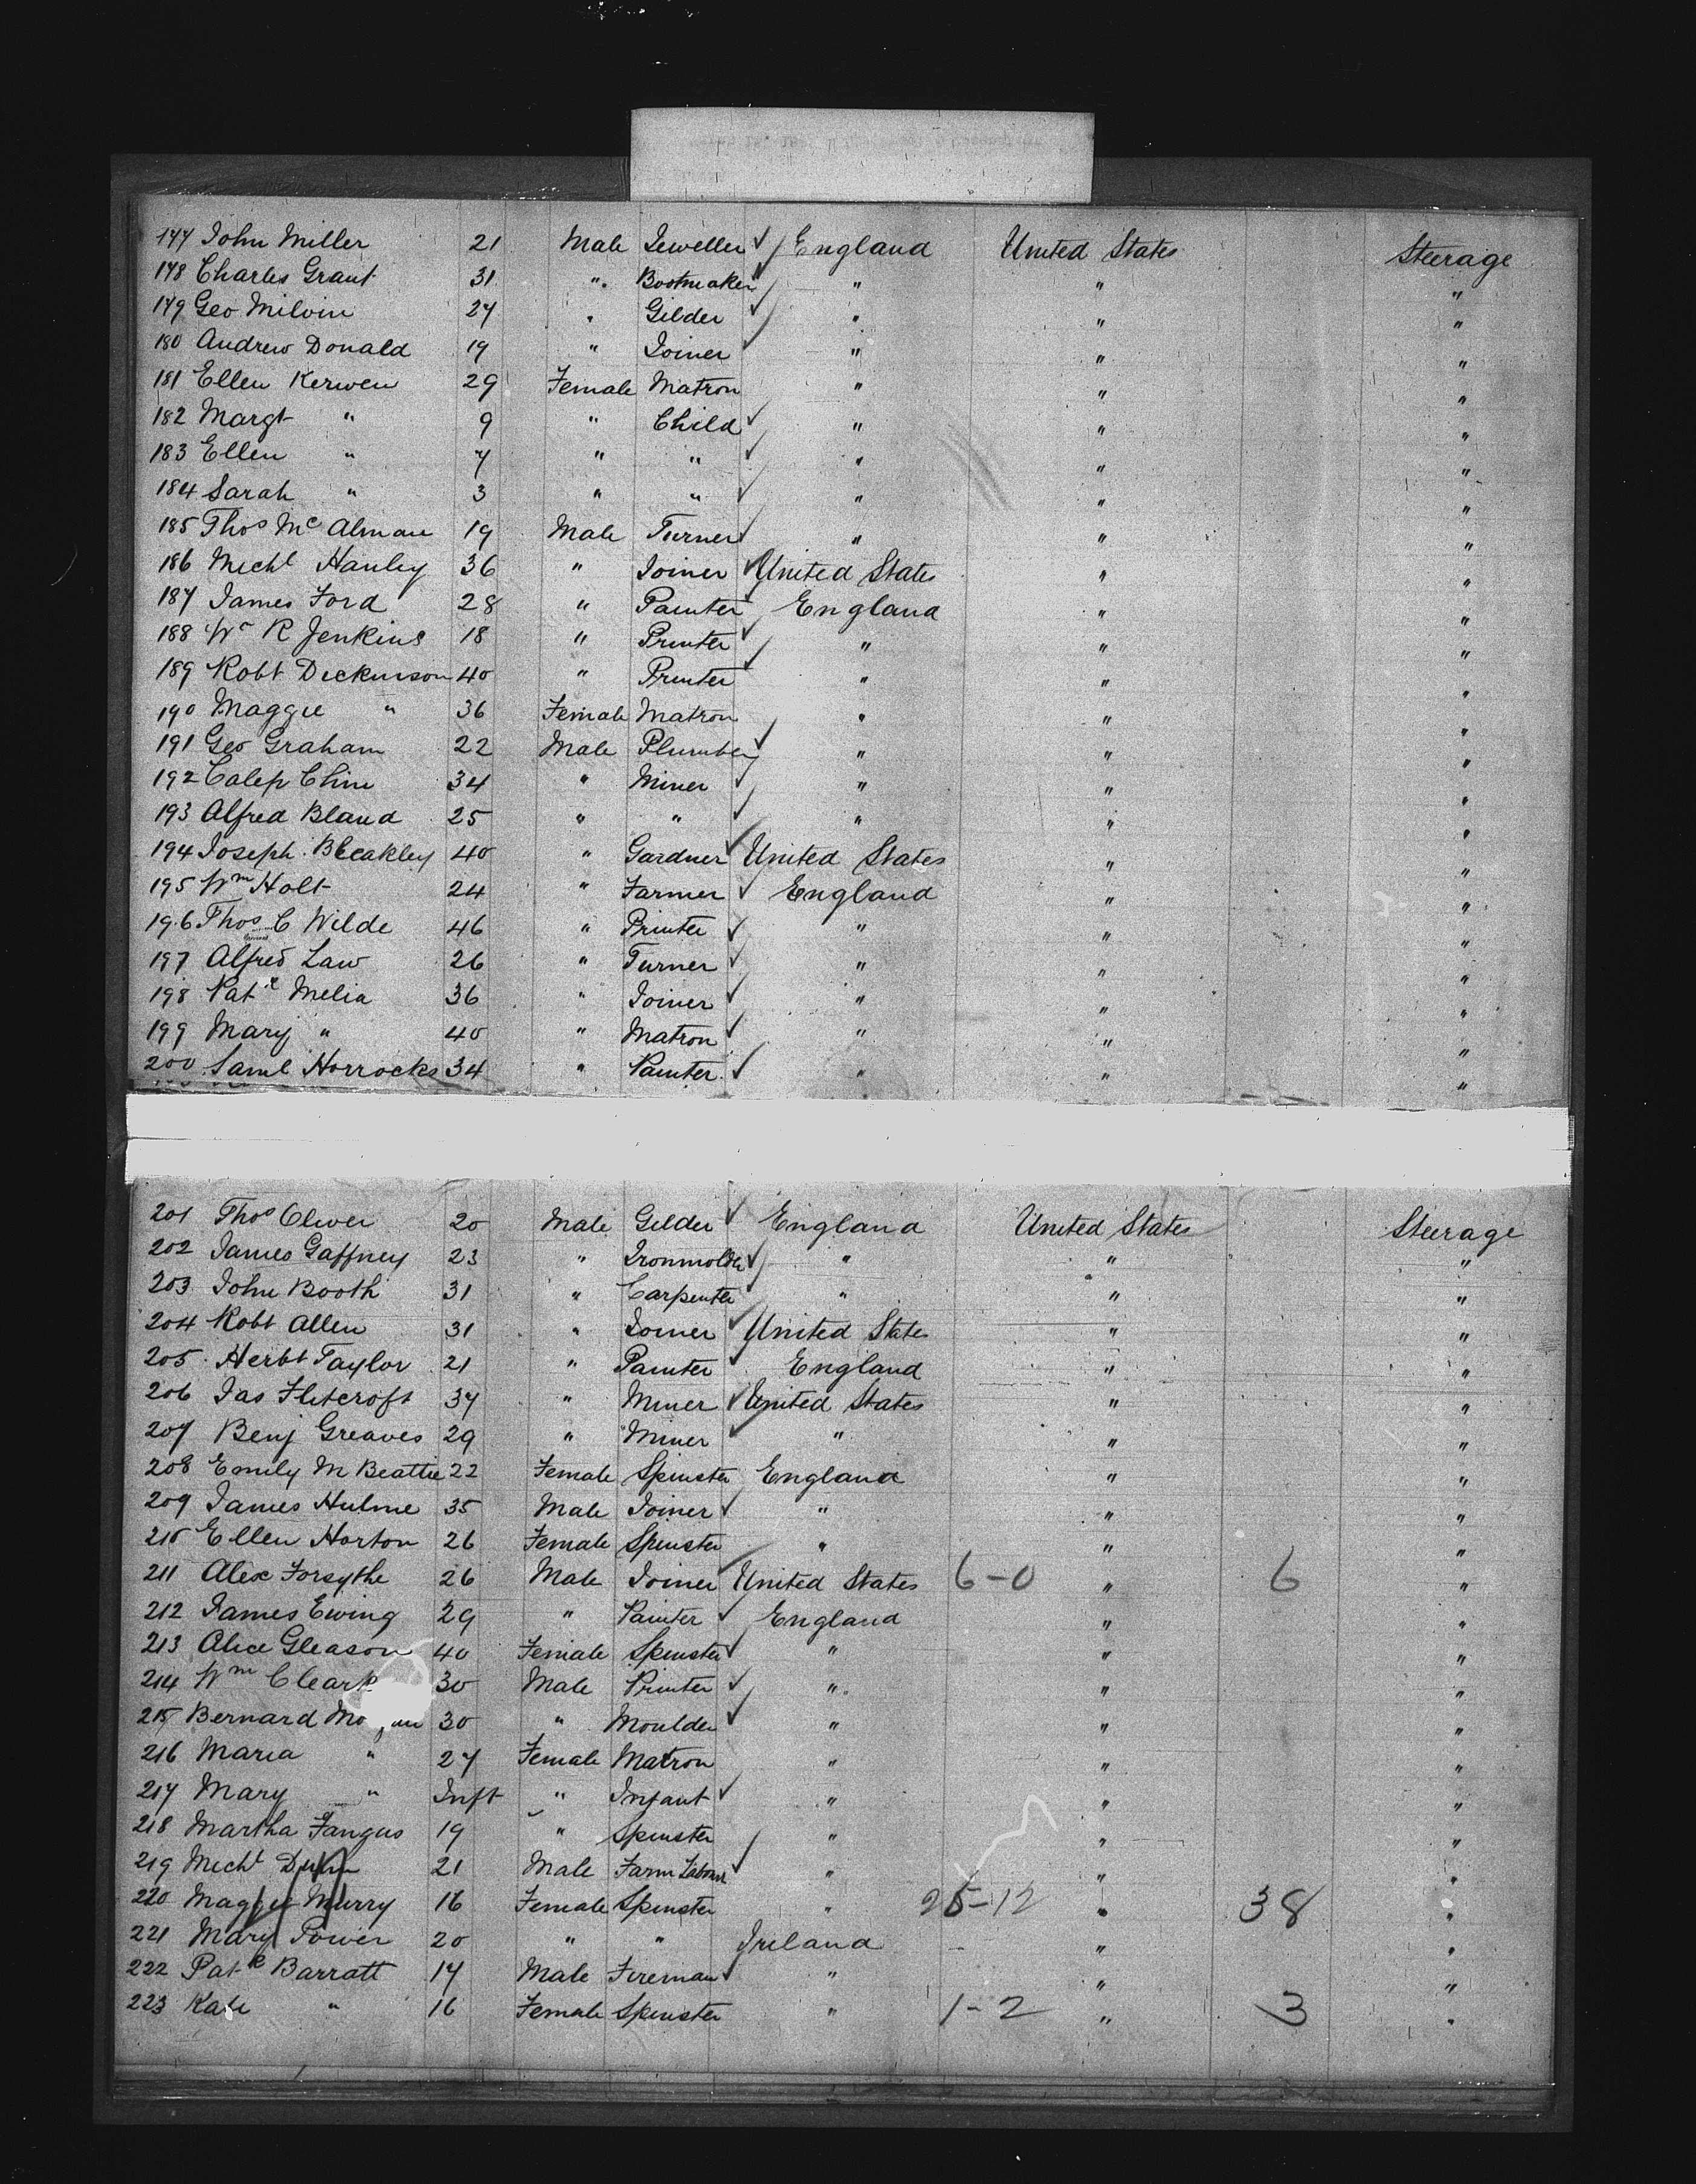 177 John Miller 21 Male Jeweller England United States Steerage
178 Charles Grant 31 " Bootmaker " " "
179 Geo Milvin 27 " Gilder " " "
180 Andrew Donald 19 " Joiner " " "
181 Ellen Kerwen 29 Female Matron " " "
182 Margt " 9 " Child " " "
183 Ellen " 7 " " " " "
184 Sarah " 3 " " " " "
185 Thos Mc Alman 19 Male Turner " " "
186 Michl Hanley 36 " Joiner United States " "
187 James Ford 28 " Painter England " "
188 Wm R Jenkins 18 " Printer " " "
189 Robt Dickinson 40 " Printer " " "
190 Maggie " 36 Female Matron " " "
191 Geo Graham 22 Male Plumber " " "
192 Calep Chine 34 " Miner " " "
193 Alfred Bland 25 " " " " "
194 Joseph Bleakley 40 " Gardner United States " "
195 Wm Holt 24 " Farmer England " "
196 Thos C Wilde 46 " Printer " " "
197 Alfred Law 26 " Turner " " "
198 Patk Melia 36 " Joiner " " "
199 Mary " 40 " Matron " " "
200 Saml Horrocks 34 " Painter " " "
201 Thos Oliver 20 Male Gilder England United States Steerage
202 James Gaffney 23 " Ironmolder " " "
203 John Booth 31 " Carpenter " " "
204 Robt Allen 31 " Joiner United States " "
205 Herbt Taylor 21 " Painter England " "
206 Jas Flitcroft 37 " Miner United States " "
207 Benj Greaves 29 " Miner " " "
208 Emily M Beattie 22 Female Spinster England " "
209 James Hulme 35 Male Joiner " " "
210 Ellen Horton 26 Female Spinster " " "
211 Alex Forsythe 26 Male Joiner United States 6-0 " 6 "
212 James Ewing 29 " Painter England " "
213 Alice Gleason 40 Female Spinster " " "
214 Wm Cleark 30 Male Printer " " "
215 Bernard 30 " Moulder " " "
216 Maria " 27 Female Matron " " "
217 Mary " Inft " Infant " " "
218 Martha Fangus 19 " Spinster " " "
219 Michl Dunn 21 Male Farm Labour " " "
220 Maggie Murry 16 Female Spinster " 25-12 " 38 "
221 Mary Power 20 " " Ireland " "
222 Patk Barratt 17 Male Fireman " " "
223 Kate " 16 Female Spinster " 1-2 " 3 "